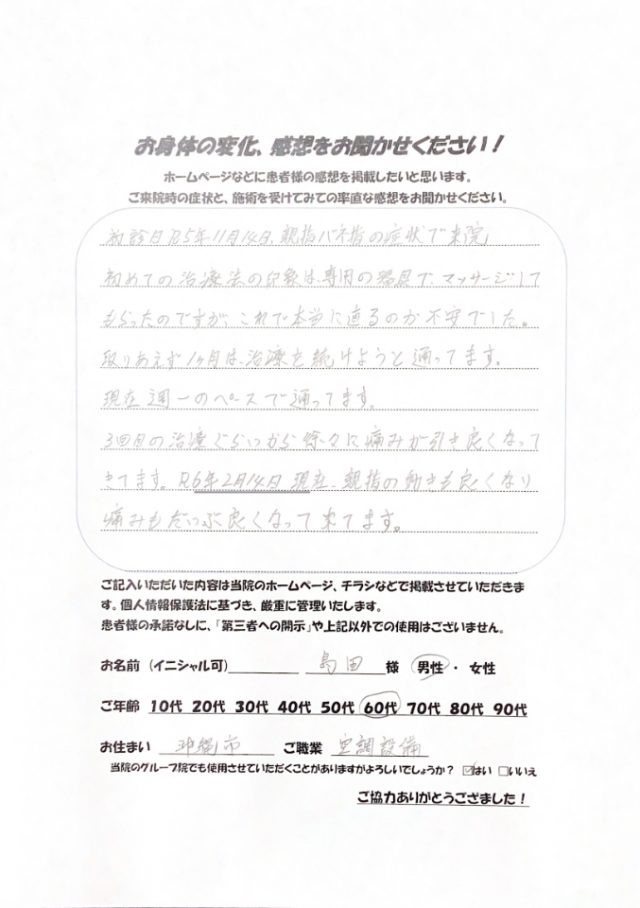 お身体の変化、感想をお聞かせください！
ホームページなどに患者様の感想を掲載したいと思います。
ご来院時の症状と、施術を受けてみての率直な感想をお聞かせください。
初診日R5年11月14日、親指バネ指の症状で来院
初めての治療法の印象は、専用の器具で、マッサージして
もらったのですが、これで本当に直るのか不安でした。
取りあえず1ヶ月は、治療を続けようと通ってます。
現在週一のペースで通ってます。
3回目の治療ぐらいから徐々に痛みが引き良くなって
きてます。R6年2月14日現在、親指の動きも良くなり
痛みもだいぶ良くなって来てます。
ご記入いただいた内容は当院のホームページ、チラシなどで掲載させていただきま
す。個人情報保護法に基づき、厳重に管理いたします。
患者様の承諾なしに、「第三者への開示」や上記以外での使用はございません。
お名前（イニシャル可） 島田 様 男性・女性
ご年齢 10代 20代 30代 40代 50代 60代 70代 80代 90代
お住まい 沖縄市 ご職業 空調設備
当院のグループ院でも使用させていただくことがありますがよろしいでしょうか？ ☑はい □いいえ
ご協力ありがとうござました！